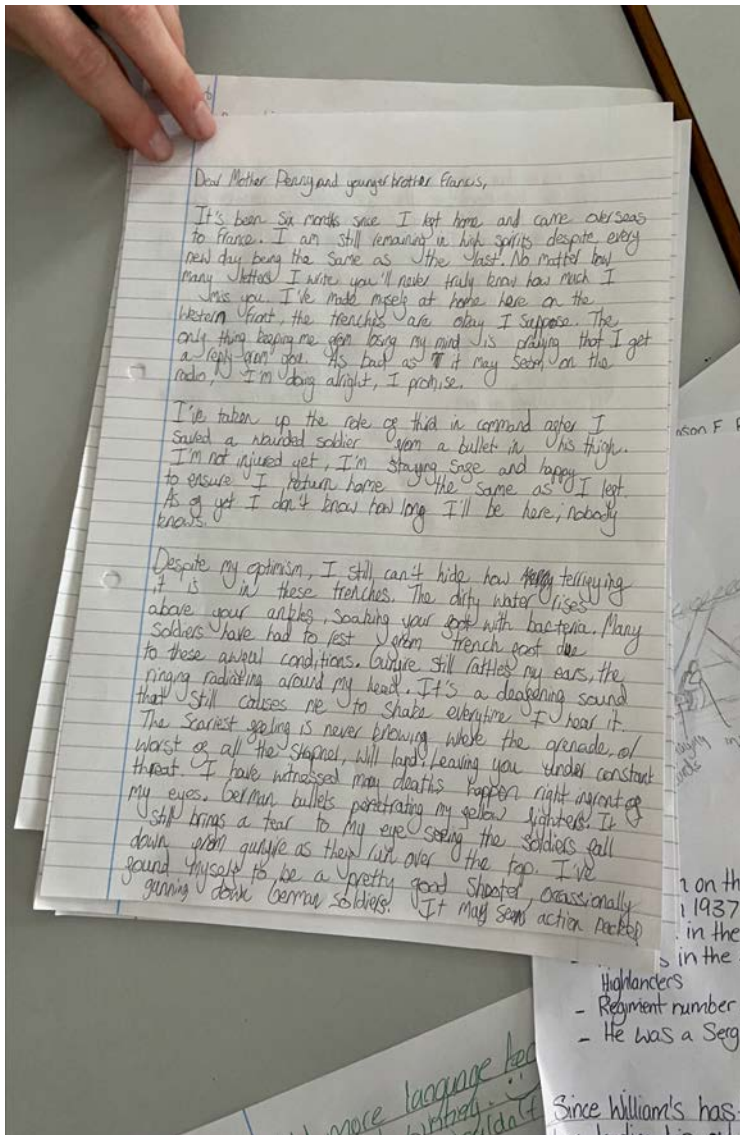 Dear Mother Penny and younger brother Francis,
It's been six months since I left home and came overseas
to France. I am still remaining in high spirits despite every
new day being the same as the last. No matter how
many letters I write you'll never truly know how much I
miss you. I've made myself at home here on the
Western front, the trenches are okay I suppose. The
only thing keeping me from losing my mind is praying that I get
a reply from you. As bad as it may seem on the
radio, I'm doing alright, I promise.
I've taken up the role of third in command after I
saved a wounded soldier from a bullet in his thigh.
I'm not injured yet, I'm staying safe and happy
to ensure I return home the same as I left.
As of yet I don't know how long I'll be here; nobody
knows.
Despite my optimism, I still can't hide how terrifying
it is in these trenches. The dirty water rises
above your ankles, soaking your foot with bacteria. Many
soldiers have had to rest from trench foot due
to these aweful conditions. Gunfire still rattles my ears, the
ringing radiating around my head. It's a deafening sound
that still causes me to shake everytime I hear it.
The scariest feeling is never knowing where the grenade, or
worst of all the shapnel, will land. Leaving you under constant
threat. I have witnessed many deaths happen right infront of
my eyes. German bullets penetrating my fellow fighters. It
still brings a tear to my eye seeing the soldiers fall
down from gunfire as they run over the top. I've
found myself to be a pretty good shooter, ocassionally
gunning down German soldiers. It may seem action packed
nson F
n on th
1937
in the
s in the
Highlanders
- Regiment number
- He was a Serg
Since William's has
more language